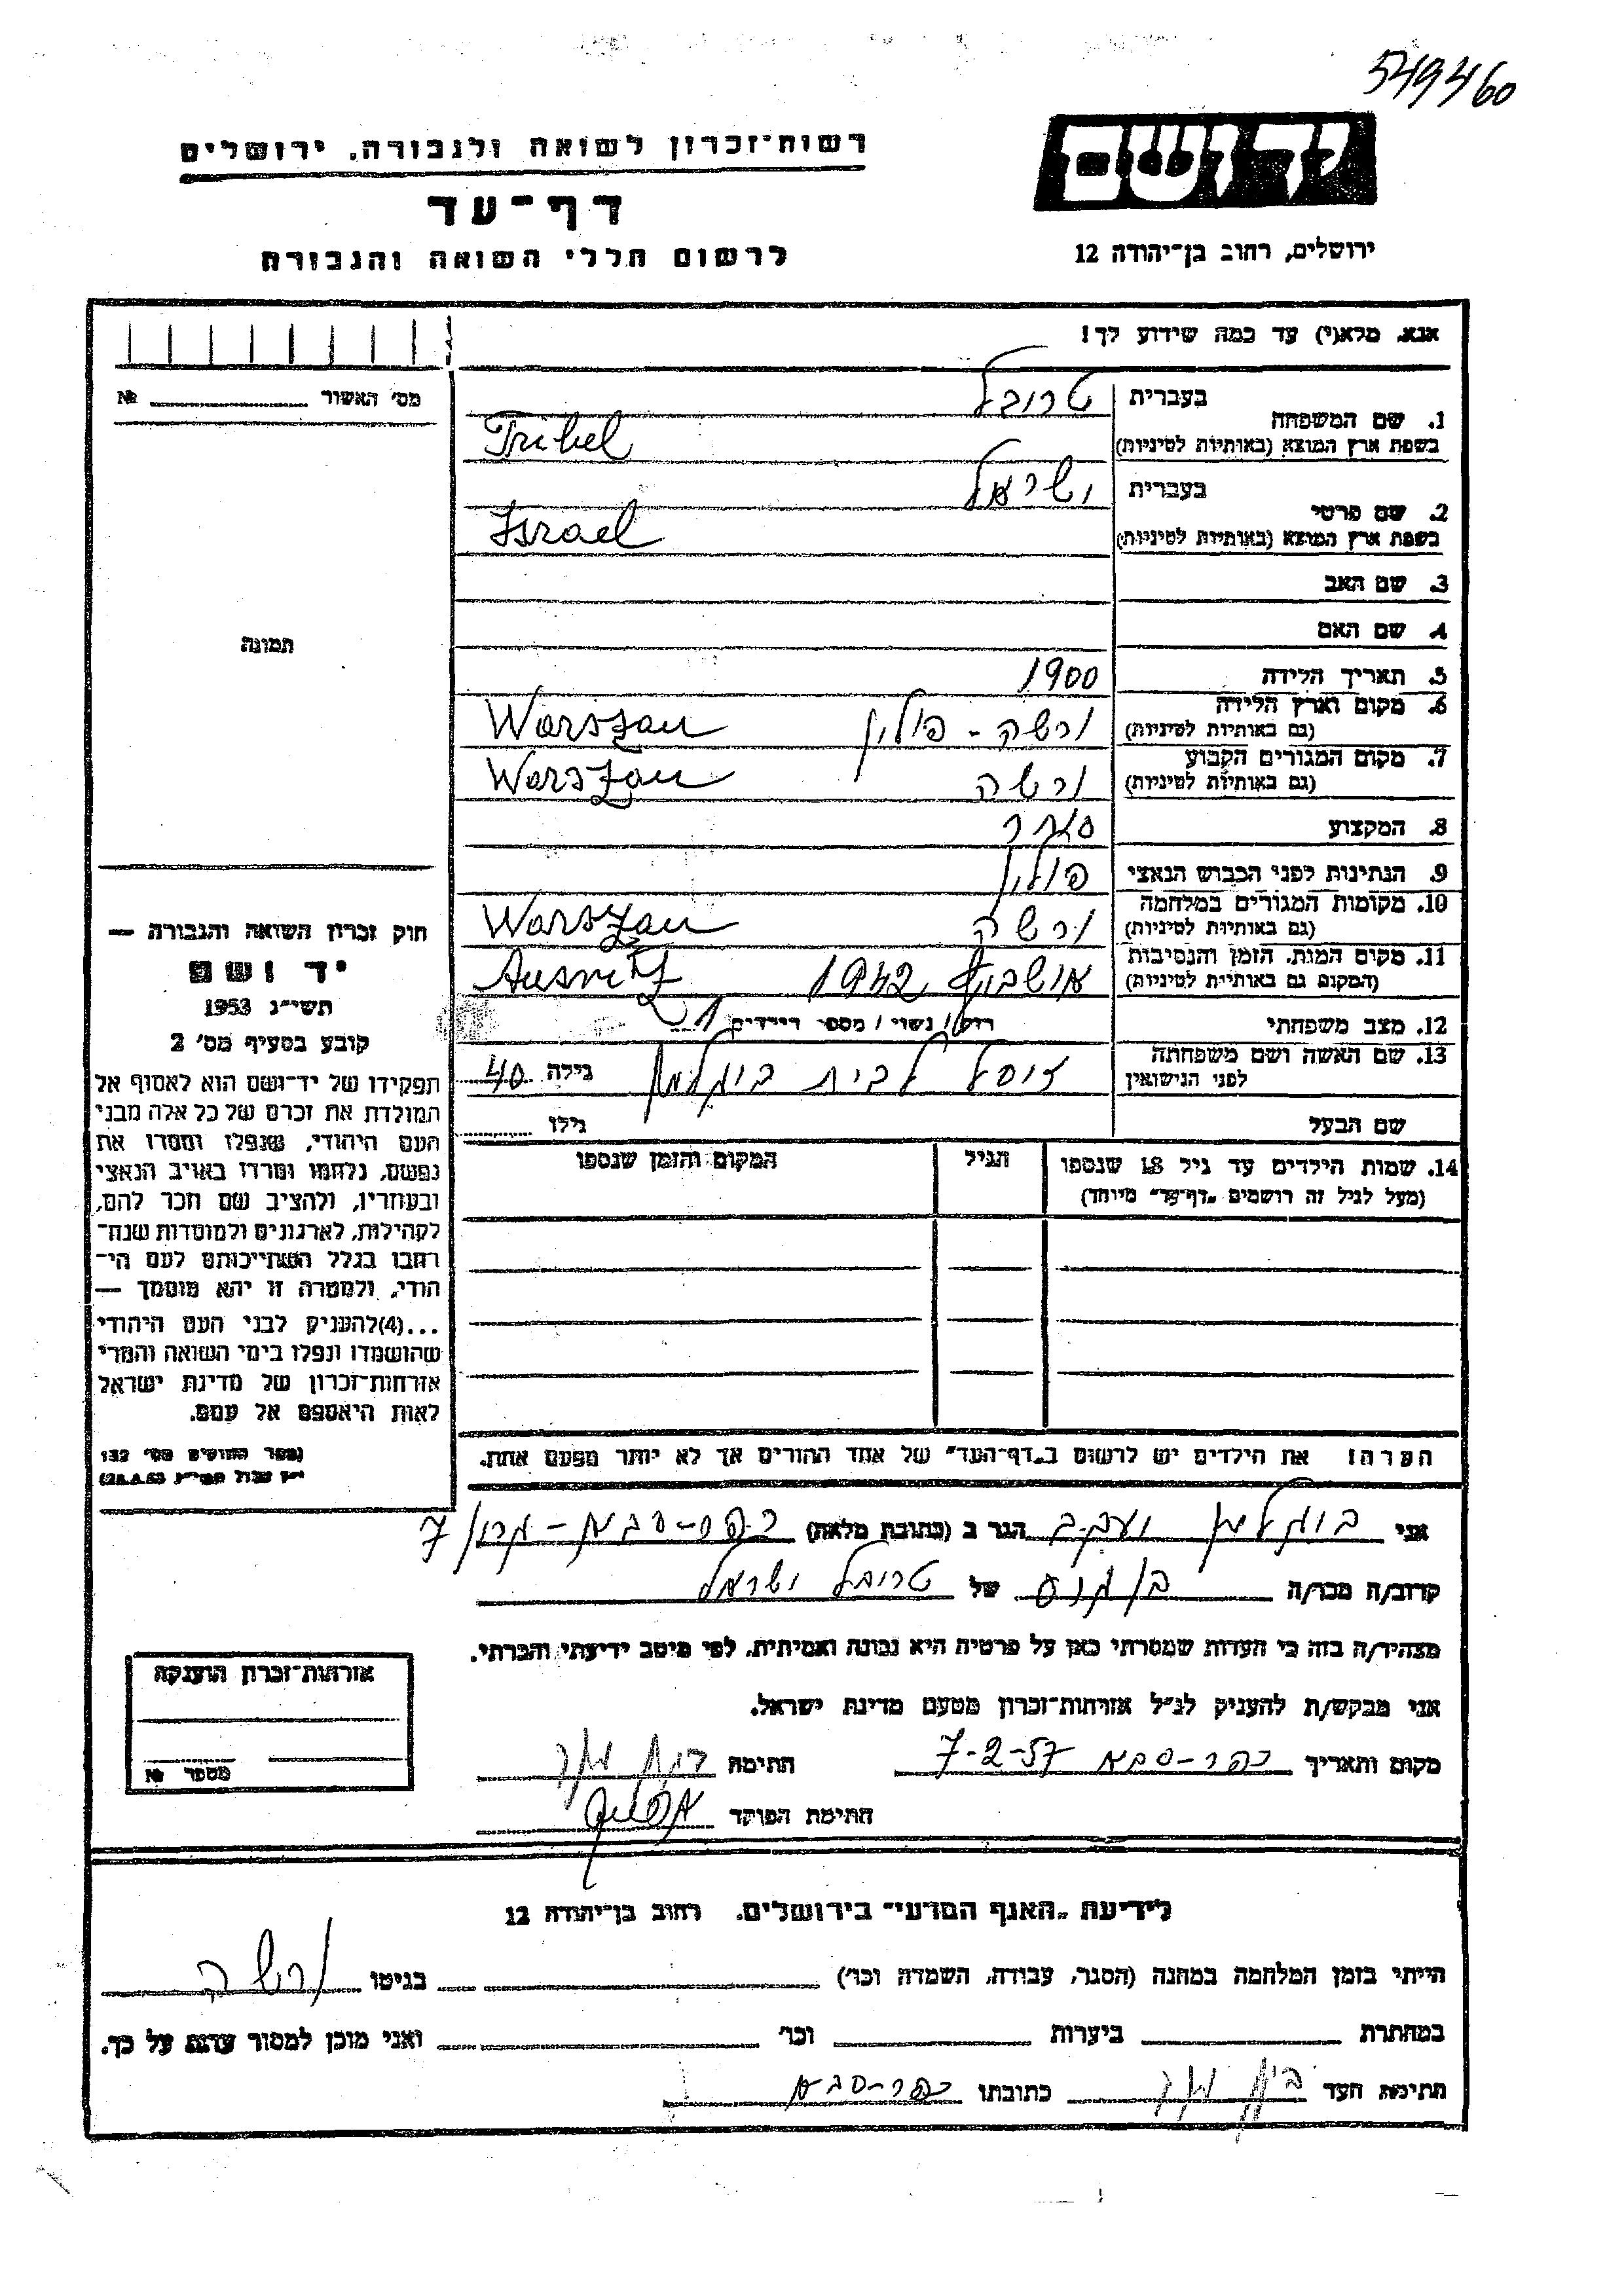 549460
יד ושם
ירושלים, רחוב בן־יהודה 12
רשות־זכרון לשואה ולגבורה. ירושלים
דף־עד
לרשום חללי השואה והגבורה
אנא, מלא(י) עד כמה שידוע לך!
מס' האשור № 
1. שם המשפחה
בעברית טרובל
בשפת ארץ המוצא (באותיות לטיניות) Tribel
2. שם פרטי
בעברית ישראל
בשפת ארץ המוצא (באותיות לטיניות) Israel
3. שם האב
4. שם האם
5. תאריך הלידה 1900
6. מקום וארץ הלידה
(גם באותיות לטיניות) ורשה - פולין Warszau
7. מקום המגורים הקבוע
(גם באותיות לטיניות) ורשה Warszau
8. המקצוע
9. הנתינות לפני הכבוש הנאצי פולין
10. מקומות המגורים במלחמה
(גם באותיות לטיניות) ורשה Warszau
11. מקום המות, הזמן והנסיבות
(המקום גם באותיות לטיניות) 1942
12. מצב משפחתי רוק / נשוי / מספר הילדים 1
13. שם האשה ושם משפחתה
לפני הנישואין לבית גילה 40
שם הבעל גילו
14. שמות הילדים עד גיל 18 שנספו
(מעל לגיל זה רושמים „דף־עד" מיוחד)
הגיל
המקום והזמן שנספו
הערה! את הילדים יש לרשום ב„דף־העד" של אחד ההורים אך לא יותר מפעם אחת.
תמונה
חוק זכרון השואה והגבורה —
יד ושם
תשי"ג 1953
קובע בסעיף מס' 2
תפקידו של יד־ושם הוא לאסוף אל
המולדת את זכרם של כל אלה מבני
העם היהודי, שנפלו ומסרו את
נפשם, נלחמו ומרדו באויב הנאצי
ובעוזריו, ולהציב שם וזכר להם,
לקהילות, לארגונים ולמוסדות שנח־
רבו בגלל השתייכותם לעם הי־
הודי, ולמטרה זו יהא מוסמך —
...(4)להעניק לבני העם היהודי
שהושמדו ונפלו בימי השואה והמרי
אזרחות־זכרון של מדינת ישראל
לאות היאספם אל עמם.
(ספר החוקים מס' 132
אני יעקב הגר ב (כתובת מלאה) כפר-סבא 7
קרוב/ה מכר/ה של טרובל ישראל
מצהיר/ה בזה כי העדות שמסרתי כאן על פרטיה היא נכונה ואמיתית, לפי מיטב ידיעתי והכרתי.
אני מבקש/ת להעניק לנ"ל אזרחות־זכרון מטעם מדינת ישראל.
מקום ותאריך כפר-סבא 7-2-57 חתימה
חתימת הפוקד
אזרחות־זכרון הוענקה
מספר №
לידיעת „האגף המדעי" בירושלים. רחוב בן־יהודה 12
הייתי בזמן המלחמה במחנה (הסגר, עבודה, השמדה וכו') בגיטו ורשה
במחתרת ביערות וכו' ואני מוכן למסור עדות על כך.
חתימת העד כתובתו כפר-סבא